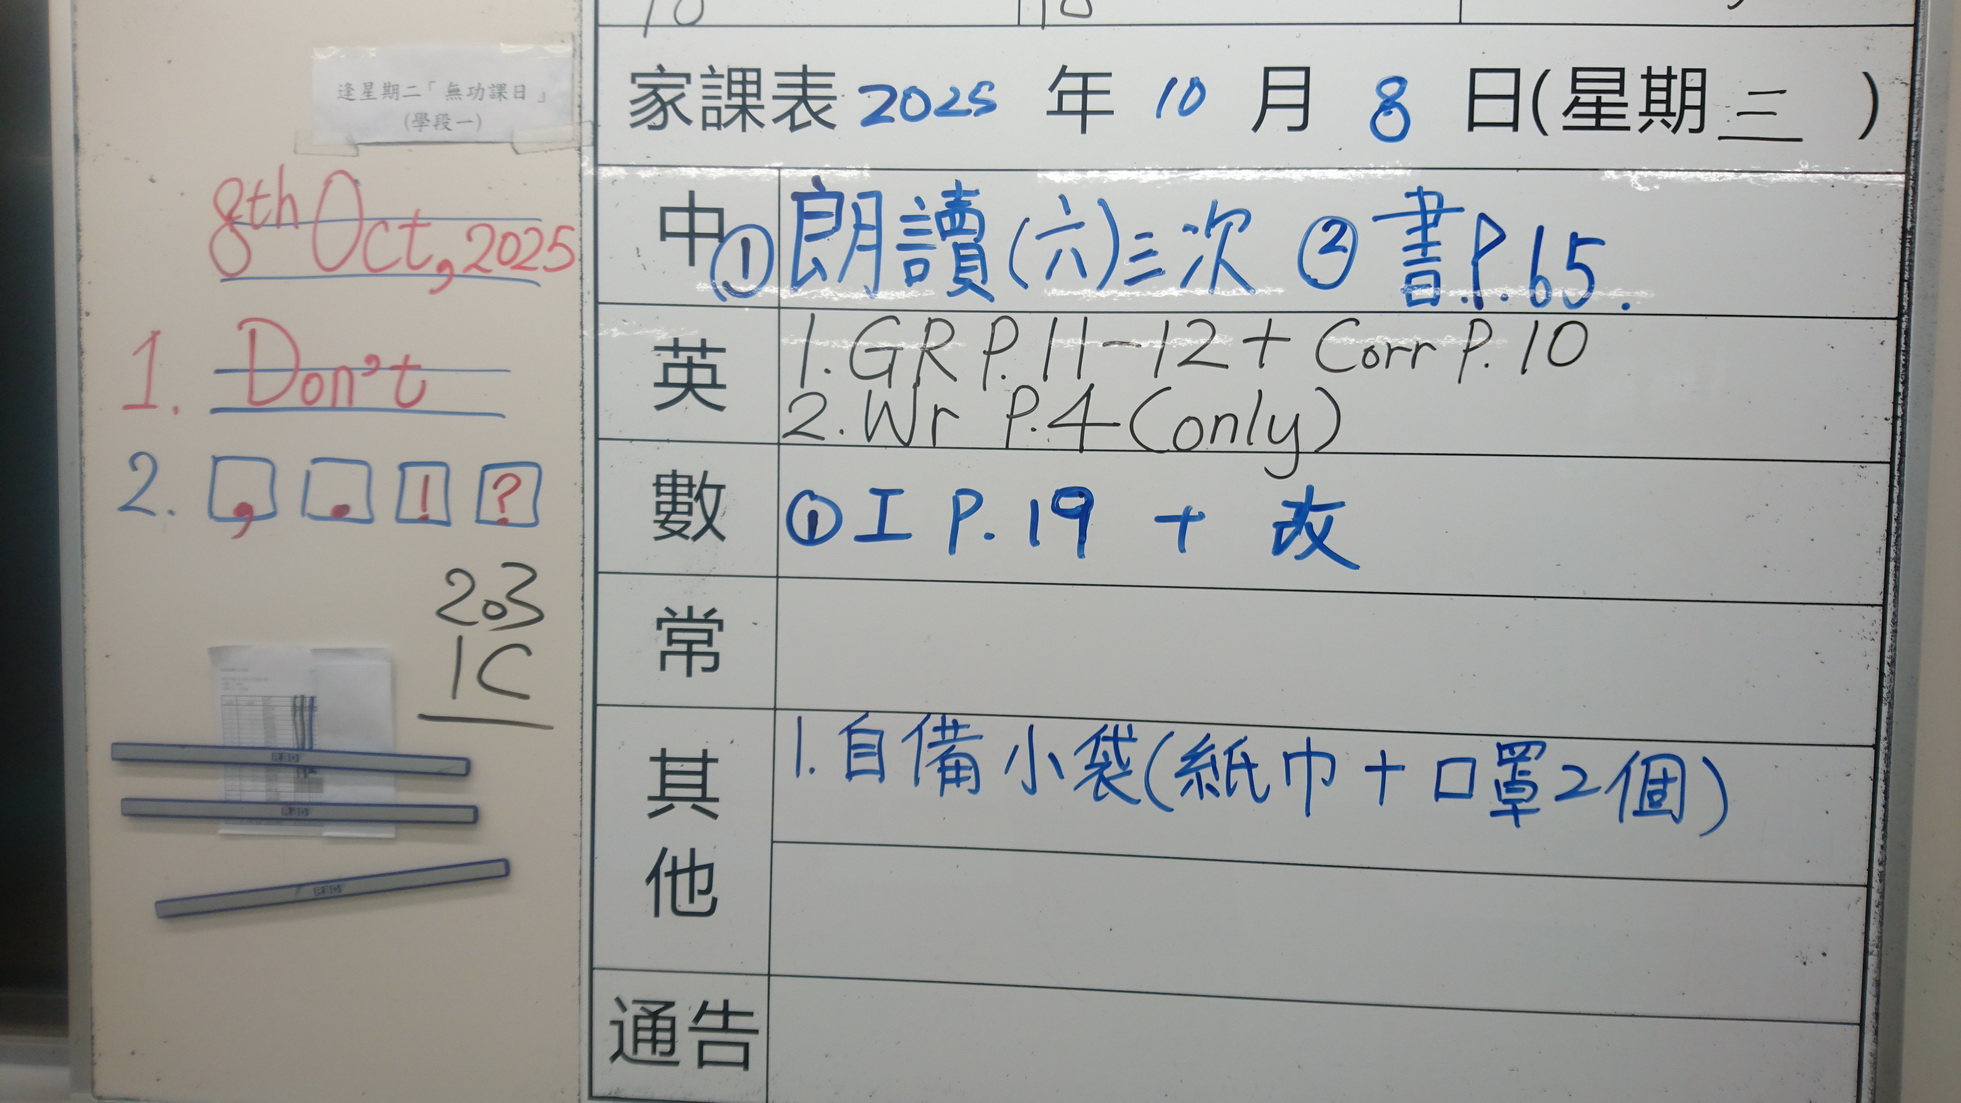 逢星期二「無功課日」
(學段一)
8th Oct, 2025
1. Don't
2. , . ! ?
203
1C
家課表 2025 年 10 月 8 日(星期三)
中 ①朗讀(六)三次 ②書P.65.
英 1. GR P.11-12 + Corr P.10
2. Wr P.4 (only)
數 ①工 P.19 + 改
常
其他 1. 自備小袋(紙巾+口罩2個)
通告